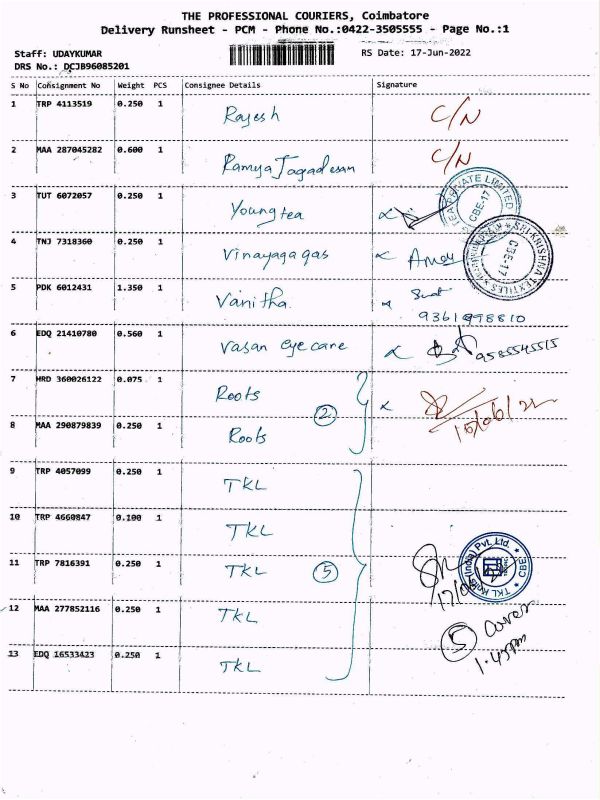 THE PROFESSIONAL COURIERS, Coimbatore
Delivery Runsheet - PCM - Phone No.:0422-3505555 - Page No.:1
Staff: UDAYKUMAR
RS Date: 17-Jun-2022
DRS No.: DCJB96085201
S No Consignment No Weight PCS Consignee Details Signature
1 TRP 4113519 0.250 1 Rajesh C/N
2 MAA 287045282 0.600 1 Ramya Jagadesan C/N
3 TUT 6072057 0.250 1 Young tea
PRIVATE LIMITED
CBE-17
4 TNJ 7318360 0.250 1 Vinayaga gas
SRI KRISHNA TEXTILES
CBE-17
5 PDK 6012431 1.350 1 Vanitha.
9361998810
6 EDQ 21410780 0.560 1 Vasan eye care 9585545515
7 HRD 360026122 0.075 1 Roots
2
8 MAA 290879839 0.250 1 Roots
9 TRP 4057099 0.250 1 TKL
10 TRP 4660847 0.100 1 TKL
11 TRP 7816391 0.250 1 TKL 5
TKL Knits (India) Pvt. Ltd.
CBE
12 MAA 277852116 0.250 1 TKL
5 Cover
1.45pm
13 EDQ 16533423 0.250 1 TKL